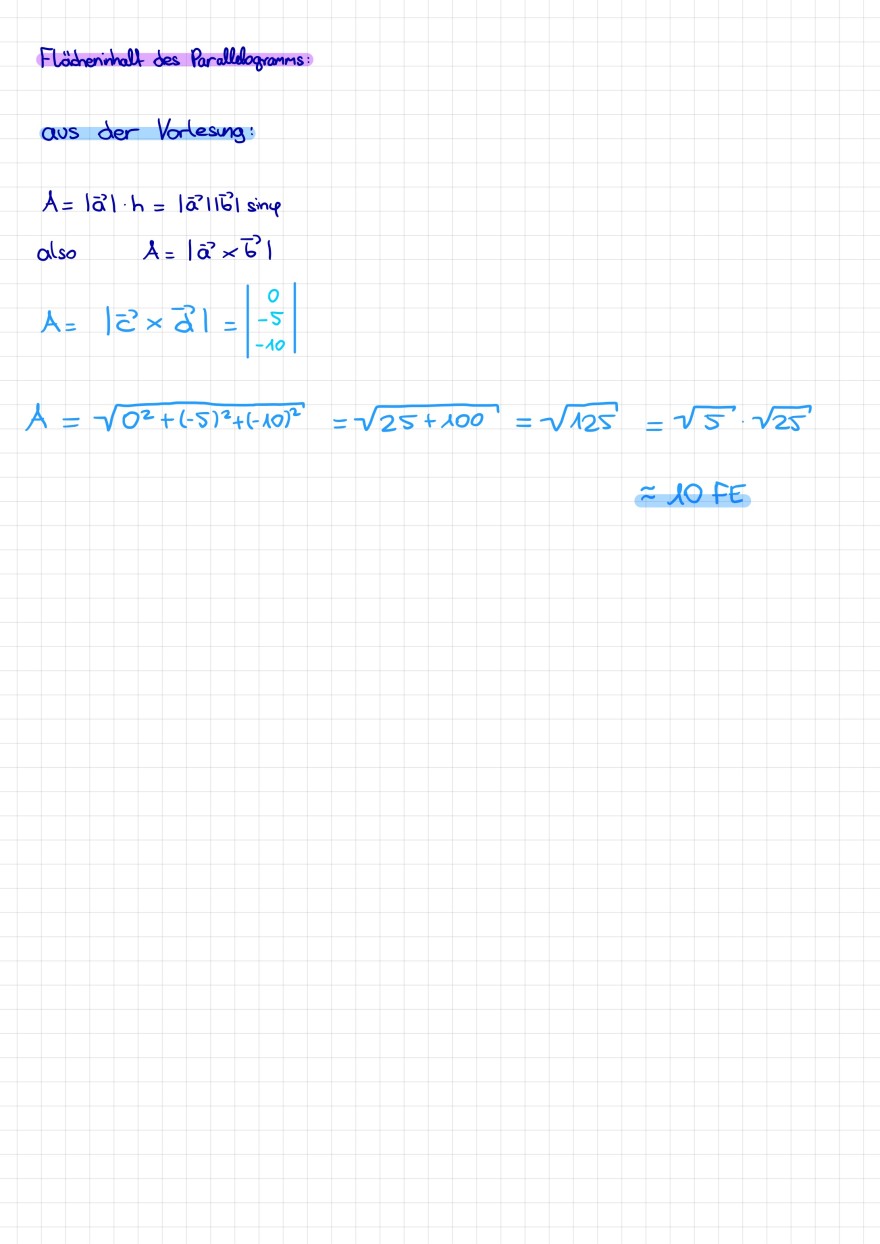 Flächeninhalt des Parallelogramms:
aus der Vorlesung:
A = |a⃗| · h = |a⃗||b⃗| sinφ
also A = |a⃗ × b⃗|
A = |c⃗ × d⃗| = |0 -5 -10|
A = √(0² + (-5)² + (-10)²) = √(25 + 100) = √125 = √5 · √25
≈ 10 FE